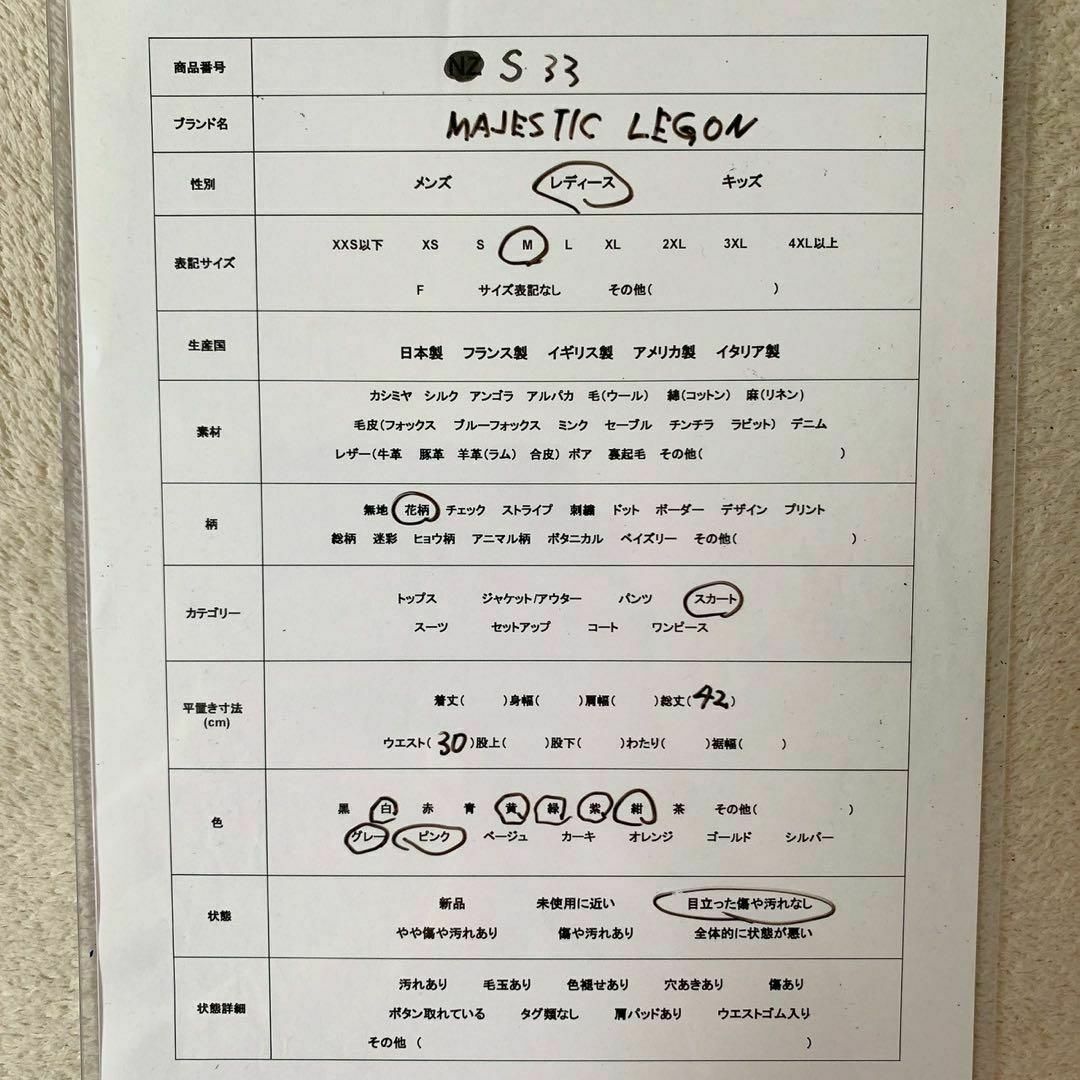 商品番号 NZ S 33
ブランド名 MAJESTIC LEGON
性別 メンズ レディース キッズ
表記サイズ
XXS以下 XS S M L XL 2XL 3XL 4XL以上
F サイズ表記なし その他( )
生産国 日本製 フランス製 イギリス製 アメリカ製 イタリア製
素材
カシミヤ シルク アンゴラ アルパカ 毛(ウール) 綿(コットン) 麻(リネン)
毛皮(フォックス ブルーフォックス ミンク セーブル チンチラ ラビット) デニム
レザー(牛革 豚革 羊革(ラム) 合皮) ボア 裏起毛 その他( )
柄
無地 花柄 チェック ストライプ 刺繍 ドット ボーダー デザイン プリント
総柄 迷彩 ヒョウ柄 アニマル柄 ボタニカル ペイズリー その他( )
カテゴリー
トップス ジャケット/アウター パンツ スカート
スーツ セットアップ コート ワンピース
平置き寸法
(cm)
着丈( )身幅( )肩幅( )総丈(42)
ウエスト(30)股上( )股下( )わたり( )裾幅( )
色
黒 白 赤 青 黄 緑 紫 紺 茶 その他( )
グレー ピンク ベージュ カーキ オレンジ ゴールド シルバー
状態
新品 未使用に近い 目立った傷や汚れなし
やや傷や汚れあり 傷や汚れあり 全体的に状態が悪い
状態詳細
汚れあり 毛玉あり 色褪せあり 穴あきあり 傷あり
ボタン取れている タグ類なし 肩パッドあり ウエストゴム入り
その他 ( )